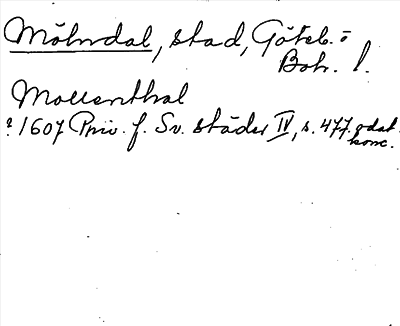 Mölndal, stad, Göteb. o
Boh. l.
Mollenthal
? 1607 Priv. f. Sv. städer IV, s. 477. odat.
konc.